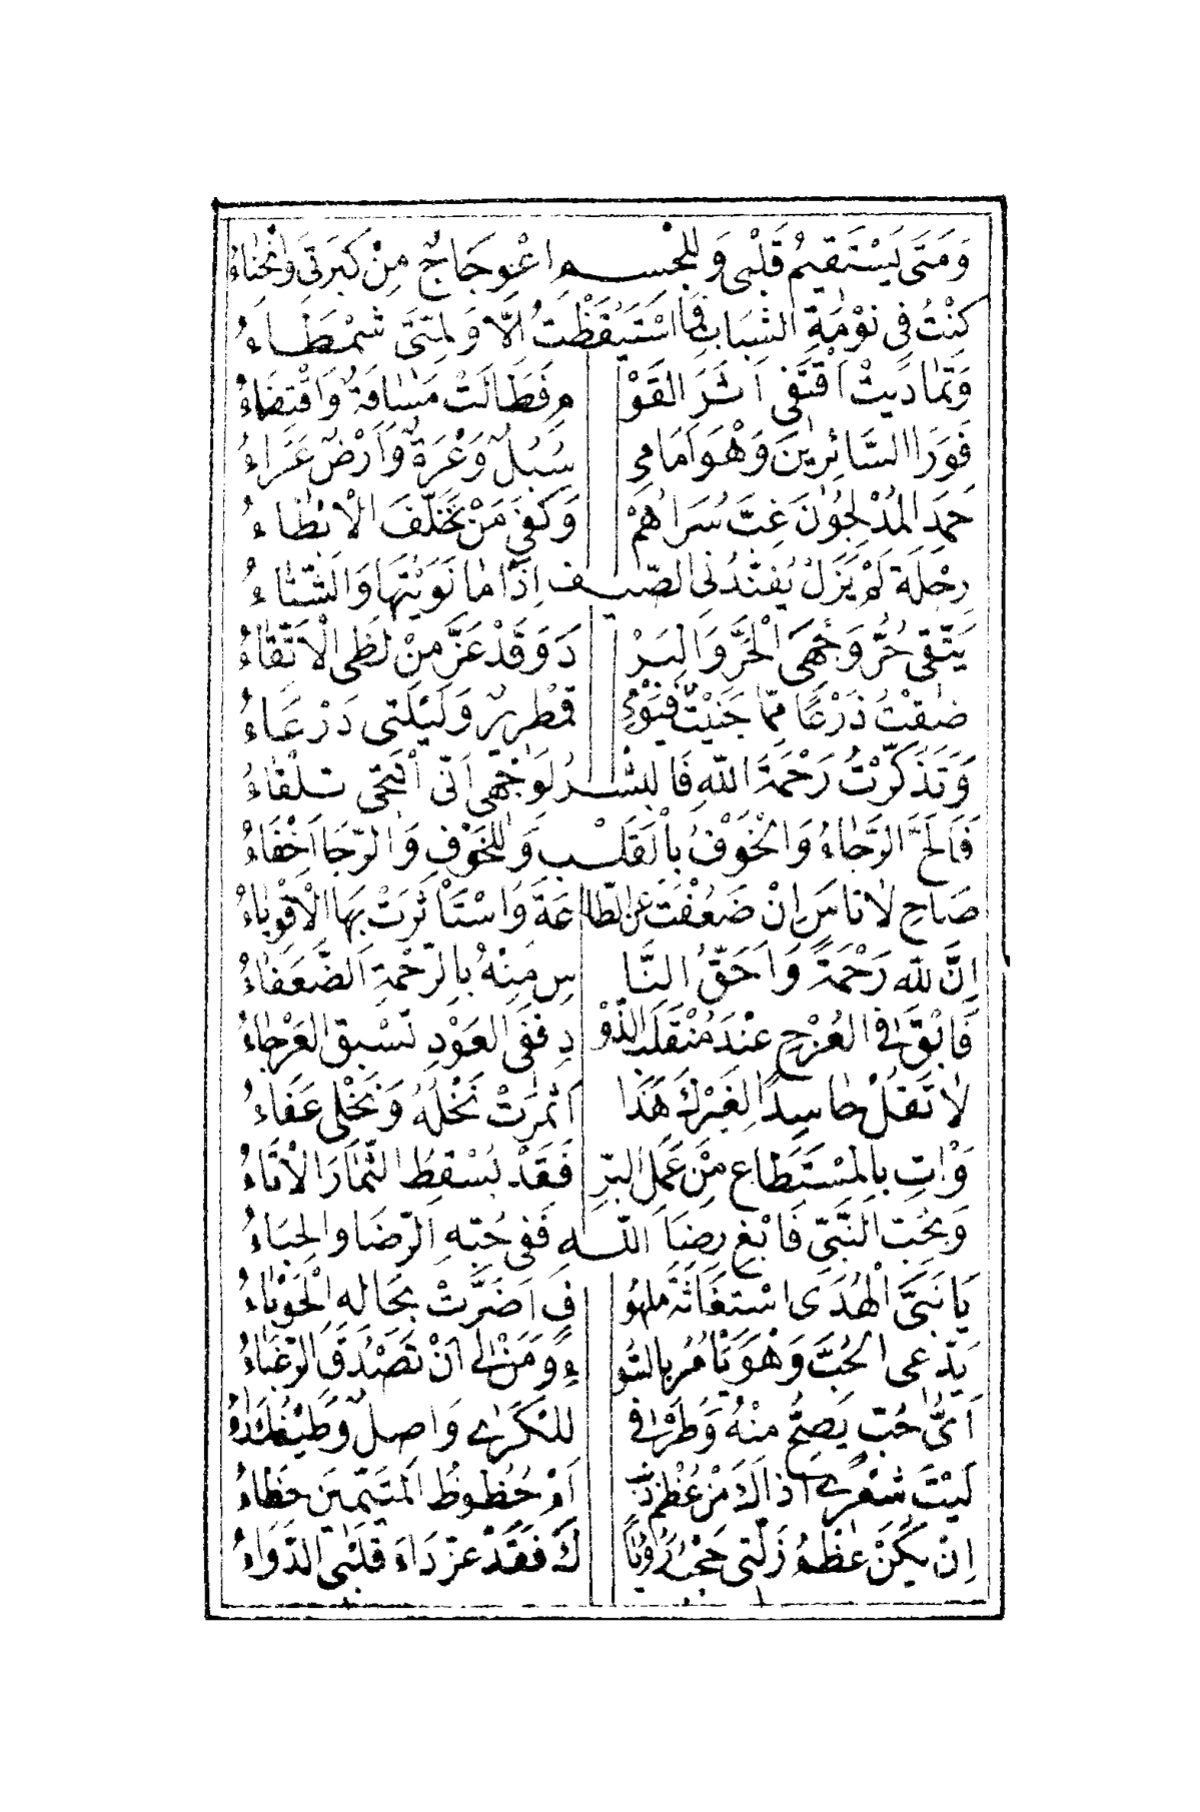 وَمَتَى يَسْتَقِيمُ قَلْبِى وَلِلْجِسْمِ اعْوِجَاجٌ مِنْ كَبْرَتِى وَانْحِنَاءُ
كُنْتُ فِى نَوْمَةِ الشَّبَابِ فَمَا اسْتَيْقَظْتُ اِلَّا وَلِمَّتِى شَمْطَاءُ
وَتَمَادَيْتُ اَقْتَفِى اَثَرَ الْقَوْ مِ فَطَالَتْ مَسَافَةٌ وَاقْتِفَاءُ
فَوَرَا السَّائِرِينَ وَهْوَ اَمَامِى سُبُلٌ وَعْرَةٌ وَاَرْضٌ عَرَاءُ
حَمِدَ الْمُدْلِجُونَ غِبَّ سُرَاهُمْ وَكَفَى مَنْ تَخَلَّفَ الْاِبْطَاءُ
رِحْلَةٌ لَمْ يَزَلْ يُفَنِّدُنِى الصَّيْفُ اِذَا مَا نَوَيْتُهَا وَالشِّتَاءُ
يَتَّقِى حُرُّ وَجْهِىَ الْحَرَّ وَالْبَرْ دَ وَقَدْ عَزَّ مِنْ لَظَى الْاِتِّقَاءُ
ضِقْتُ ذَرْعًا مِمَّا جَنَيْتُ فَيَوْمِى قَمْطَرِيرٌ وَلَيْلَتِى دَرْعَاءُ
وَتَذَكَّرْتُ رَحْمَةَ اللّٰهِ فَالْبِشْرُ لِوَجْهِى اَنَّى انْتَحَى تِلْقَاءُ
فَاَلَحَّ الرَّجَاءُ وَالْخَوْفُ بِالْقَلْبِ وَلِلْخَوْفِ وَالرَّجَا اِحْفَاءُ
صَاحِ لَا تَاْسَ اِنْ ضَعُفْتَ عَنِ الطَّا عَةِ وَاسْتَاْثَرَتْ بِهَا الْاَقْوِيَاءُ
اِنَّ لِلّٰهِ رَحْمَةً وَاَحَقُّ النَّا سِ مِنْهُ بِالرَّحْمَةِ الضُّعَفَاءُ
فَابْقَ فِى الْعُرْجِ عِنْدَ مُنْقَلَبِ الذَّوْ دِ فَفِى الْعَوْدِ تَسْبِقُ الْعَرْجَاءُ
لَا تَقُلْ حَاسِدًا لِغَيْرِكَ هَذَا اَثْمَرَتْ نَخْلُهُ وَنَخْلِى عَفَاءُ
وَاْتِ بِالْمُسْتَطَاعِ مِنْ عَمَلِ الْبِرِّ فَقَدْ يُسْقِطُ الثِّمَارَ الْاِتَاءُ
وَبِحُبِّ النَّبِىِّ فَابْغِ رِضَا اللّٰهِ فَفِى حُبِّهِ الرِّضَا وَالْحِبَاءُ
يَا نَبِىَّ الْهُدَى اسْتِغَاثَةُ مَلْهُو فٍ اَضَرَّتْ بِحَالِهِ الْحَوْبَاءُ
يَدَّعِى الْحُبَّ وَهْوَ يَاْمُرُ بِالسُّو ءِ وَمَنْ لِى اَنْ تَصْدُقَ الرَّغْبَاءُ
اَىُّ حُبٍّ يَصِحُّ مِنْهُ وَطَرْفِى لِلْكَرَى وَاصِلٌ وَطَيْفُكَ رَاءُ
لَيْتَ شِعْرِى اَذَاكَ مِنْ عُظْمِ ذَنْبٍ اَمْ حُظُوظُ الْمُتَيَّمِينَ حِظَاءُ
اِنْ يَكُنْ عُظْمُ زَلَّتِى حَجْبَ رُؤْيَا كَ فَقَدْ عَزَّ دَاءَ قَلْبِى الدَّوَاءُ